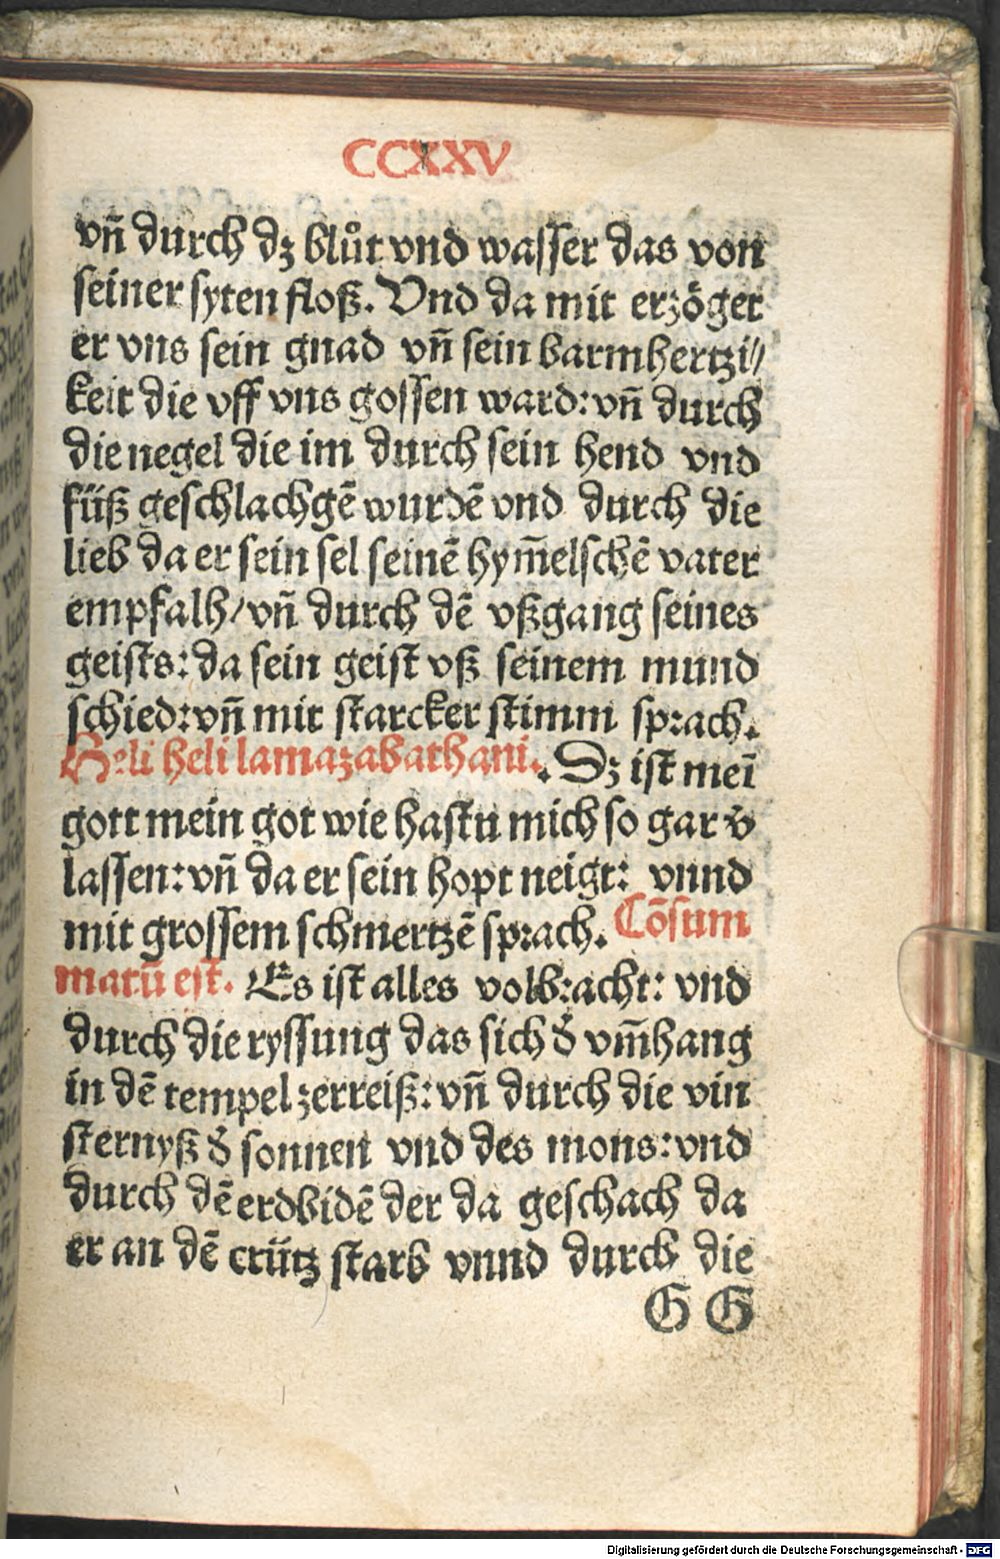 CCXXV
vñ durch dz blůt vnd wasser das von
seiner syten floß. Vnd da mit erzöget
er vns sein gnad vñ sein barmhertzi⸗
keit die vff vns gossen ward: vñ durch
die negel die im durch sein hend vnd
füß geschlachgē wurdē vnd durch die
lieb da er sein sel seinē hym̄elschē vater
empfalh/ vñ durch dē vßgang seines
geists: da sein geist vß seinem mund
schied: vñ mit starcker stimm sprach.
Heli heli lamazabathani. Dz ist meī
gott mein got wie hastu mich so gar v̄
lassen: vñ da er sein hopt neigt: vnnd
mit grossem schmertzē sprach. Cōsum
matū est. Es ist alles volbracht: vnd
durch die ryssung das sich d̄ vm̄hang
in dē tempel zerreiß: vñ durch die vin
sternyß d̄ sonnen vnd des mons: vnd
durch dē erdbidē der da geschach da
er an dē crütz starb vnnd durch die
G G
Digitalisierung gefördert durch die Deutsche Forschungsgemeinschaft - DFG